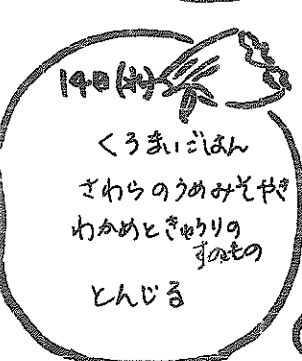 14日(水)
くろまいごはん
さわらのうめみそやき
わかめときゅうりの
すのもの
とんじる